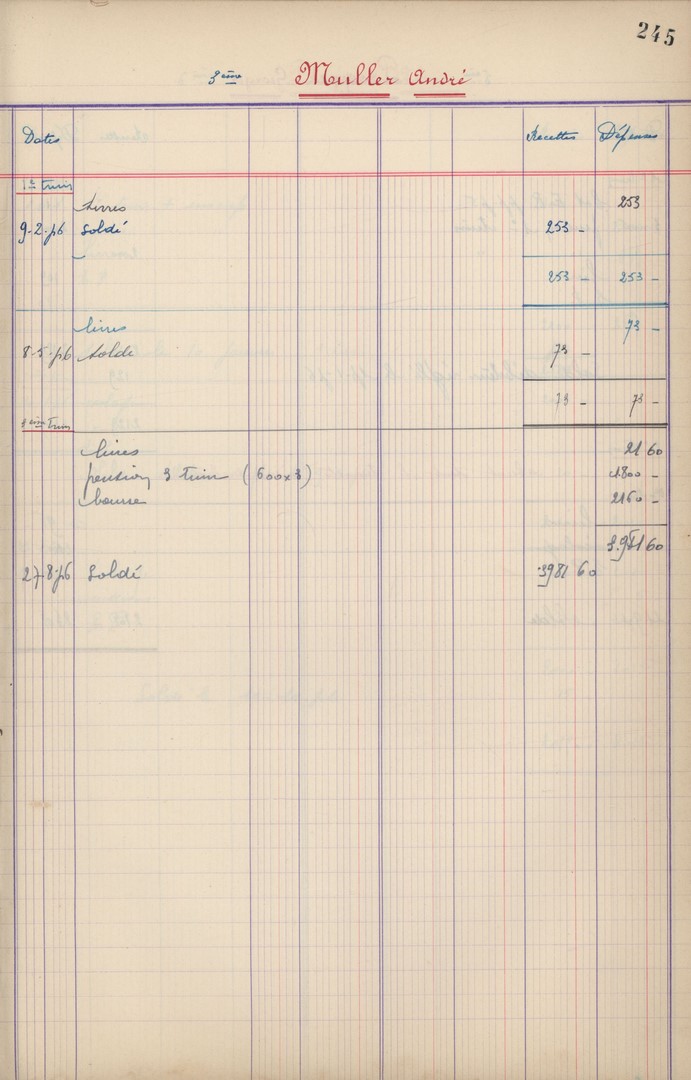 245
3ème Muller André
Dates Recettes Dépenses
1er trim
livres 253
9-2-46 Soldé 253 -
253 - 253 -
livres 73 -
8-5-46 Solde 73 -
73 - 73 -
3ème trim
livres 21 60
pension 3 trim (600x3) 1800 -
bourse 2160 -
3.981 60
27-8-46 Soldé 3981 60